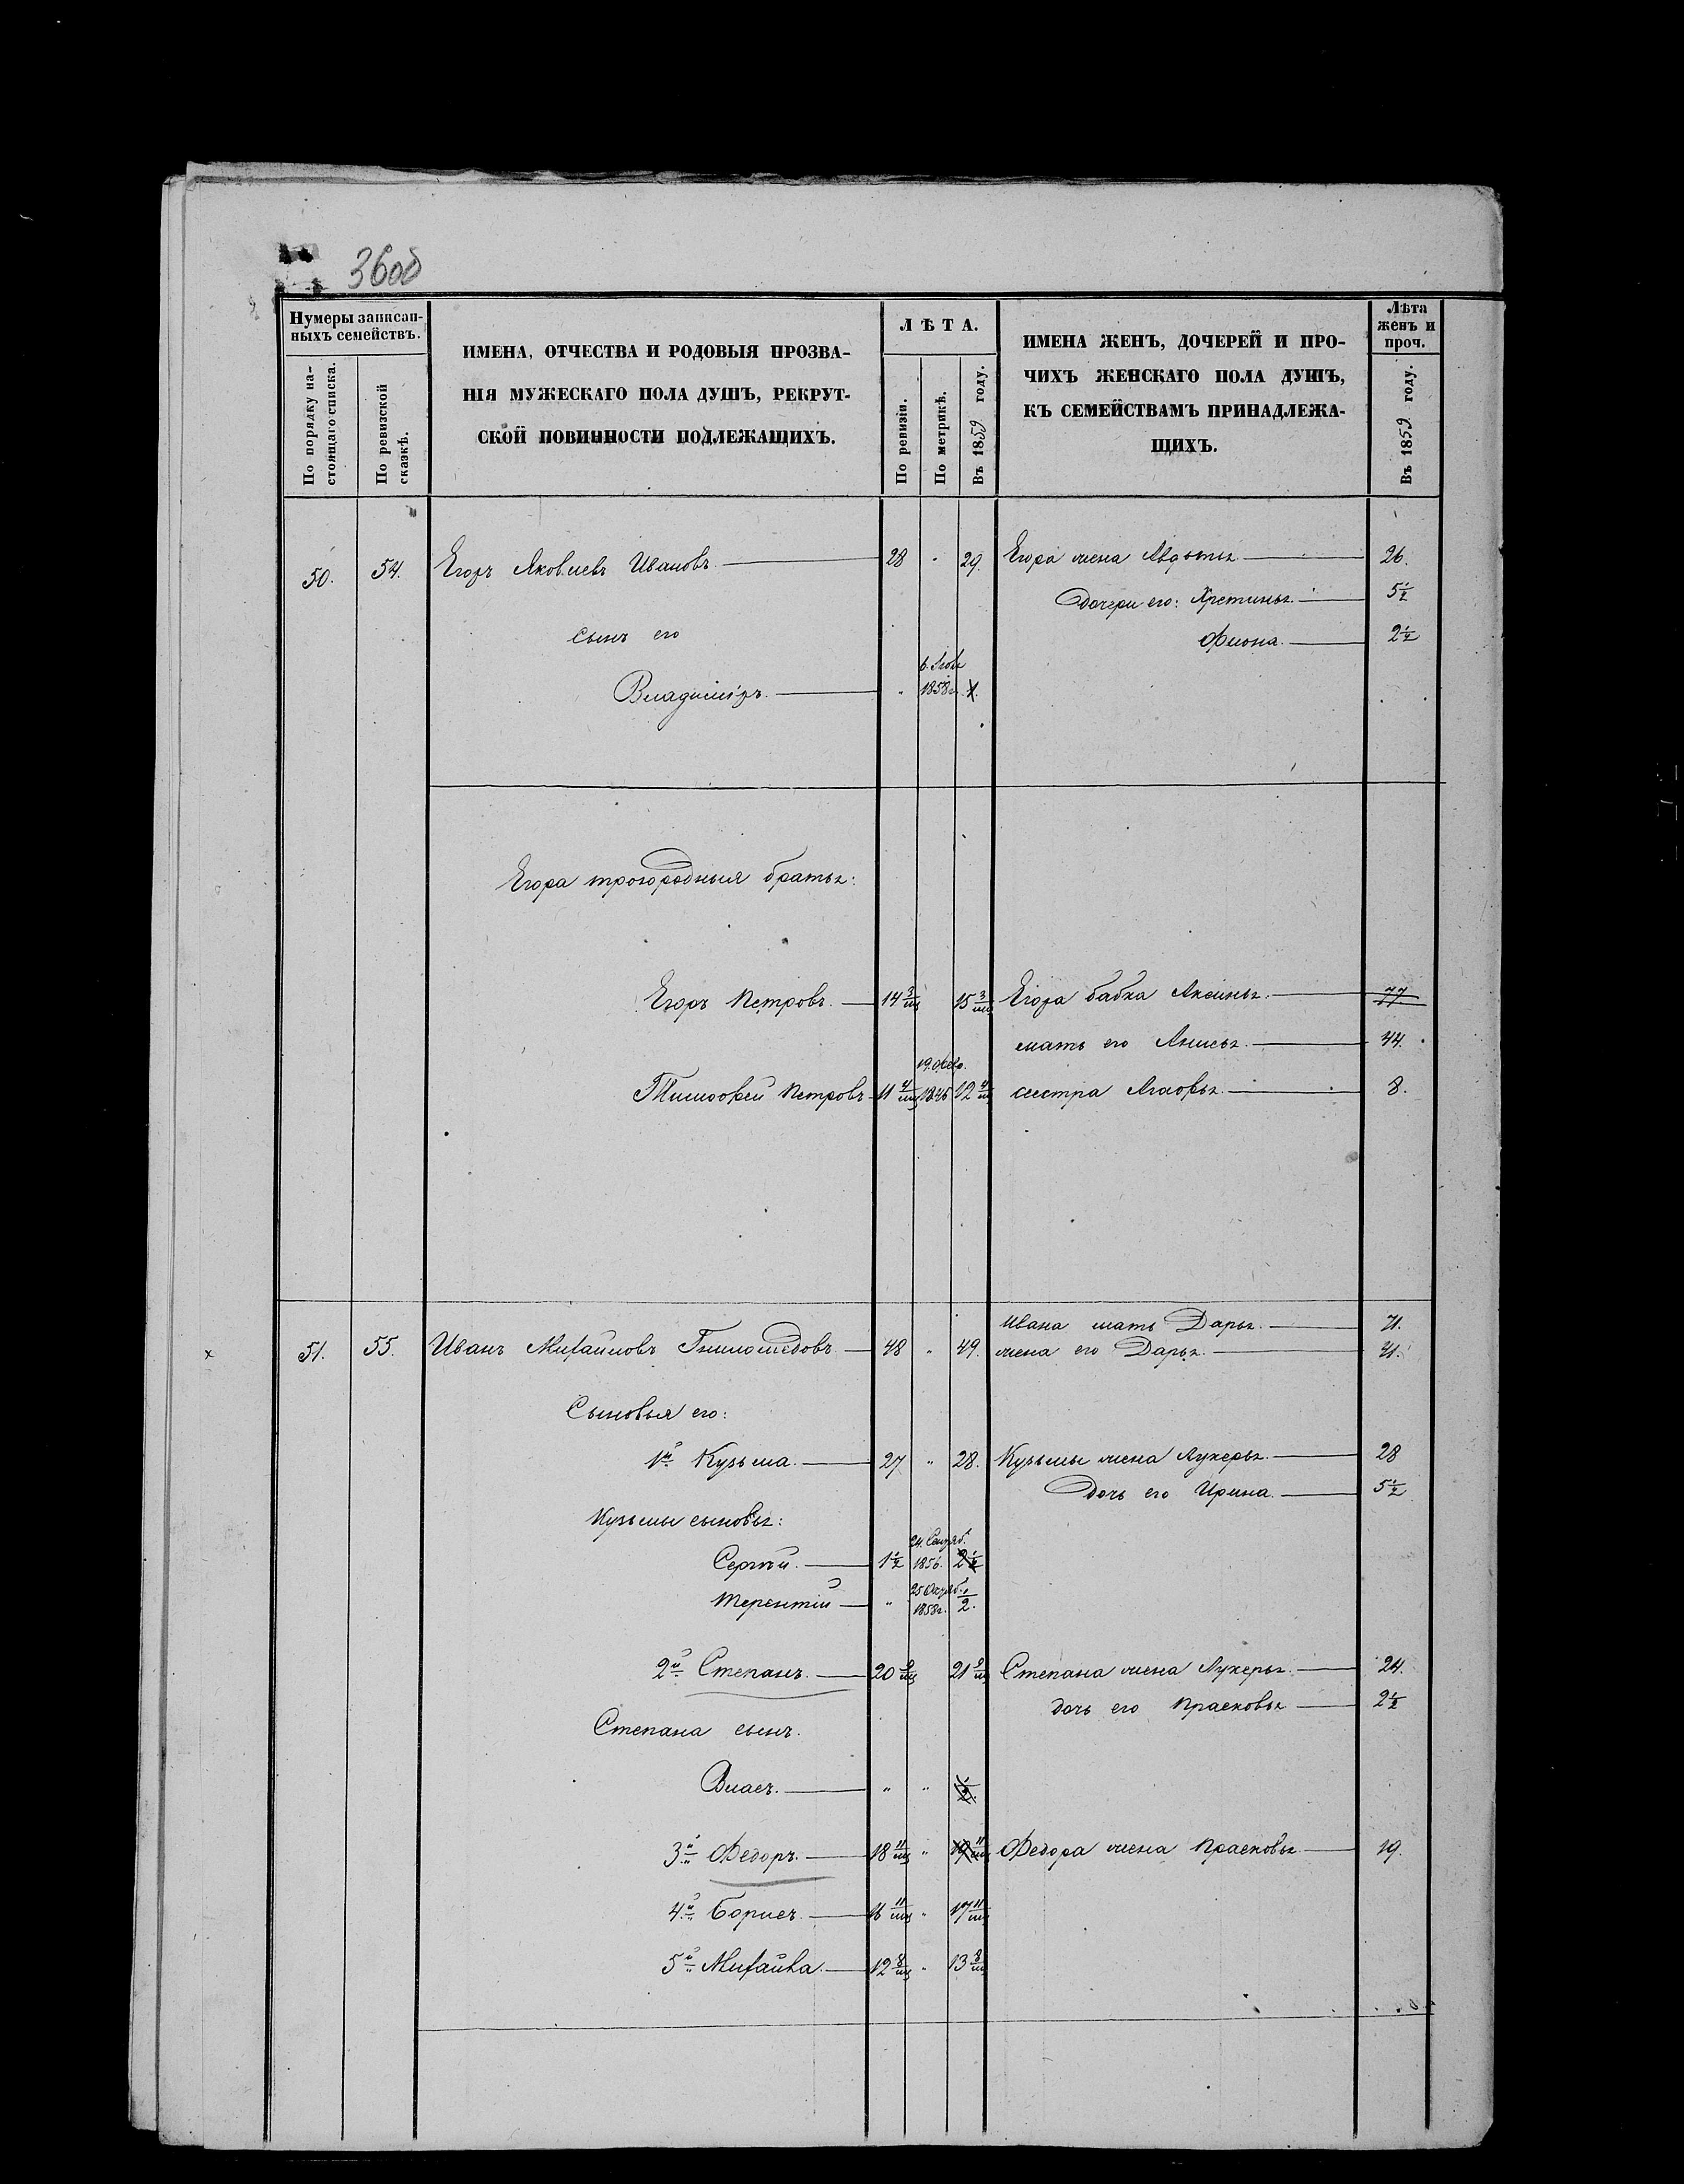 36об
Нумеры записан-
ныхъ семействъ.
По порядку на-
стоящаго списка.
По ревизской
сказкѣ.
ИМЕНА, ОТЧЕСТВА И РОДОВЫЯ ПРОЗВА-
НІЯ МУЖЕСКАГО ПОЛА ДУШЪ, РЕКРУТ-
СКОЙ ПОВИННОСТИ ПОДЛЕЖАЩИХЪ.
ЛѢТА.
По ревизіи.
По метрикѣ.
Въ 1859 году.
ИМЕНА ЖЕНЪ, ДОЧЕРЕЙ И ПРО-
ЧИХЪ ЖЕНСКАГО ПОЛА ДУШЪ,
КЪ СЕМЕЙСТВАМЪ ПРИНАДЛЕЖА-
ЩИХЪ.
Лѣта
женъ и
проч.
Въ 1859 году.
50. 54. Егоръ Яковлевъ Ивановъ. 28 " 29. Егора жена Авдотья 26.
дочери его: Хрестинья. 5½
сынъ его Фіона. 2½
Владиміръ. " 1858г. 1.
Егора троюродныя братья:
Егоръ Петровъ. 14 3/мц 15 3/мц Егора бабка Аксинья. 77.
мать его Анисья. 44.
Тимофей Петровъ 11 4/мц 1846 12 4/мц сестра Агафья. 8.
Ивана мать Дарья. 71.
51. 55. Иванъ Михайловъ Гниломедовъ 48 " 49. жена его Дарья.
Сыновья его:
1й Кузьма. 27 " 28. Кузьмы жена Лукерья. 28
дочь его Ирина. 5½
Кузьмы сыновья:
Сергѣй. 1½ 24. Сентяб. 1856. 2½
Терентій " 25 Октяб. 1858г. ½.
2й Степанъ. 20 9/мц 21 9/мц Степана жена Лукерья. 24.
дочь его Прасковья 2½
Степана сынъ.
Власъ. " " ½.
3й Федоръ. 18 11/мц " 19 11/мц Федора жена Прасковья 19.
4й Борисъ. 16 11/мц " 17 11/мц
5й Михайла. 12 8/мц " 13 8/мц